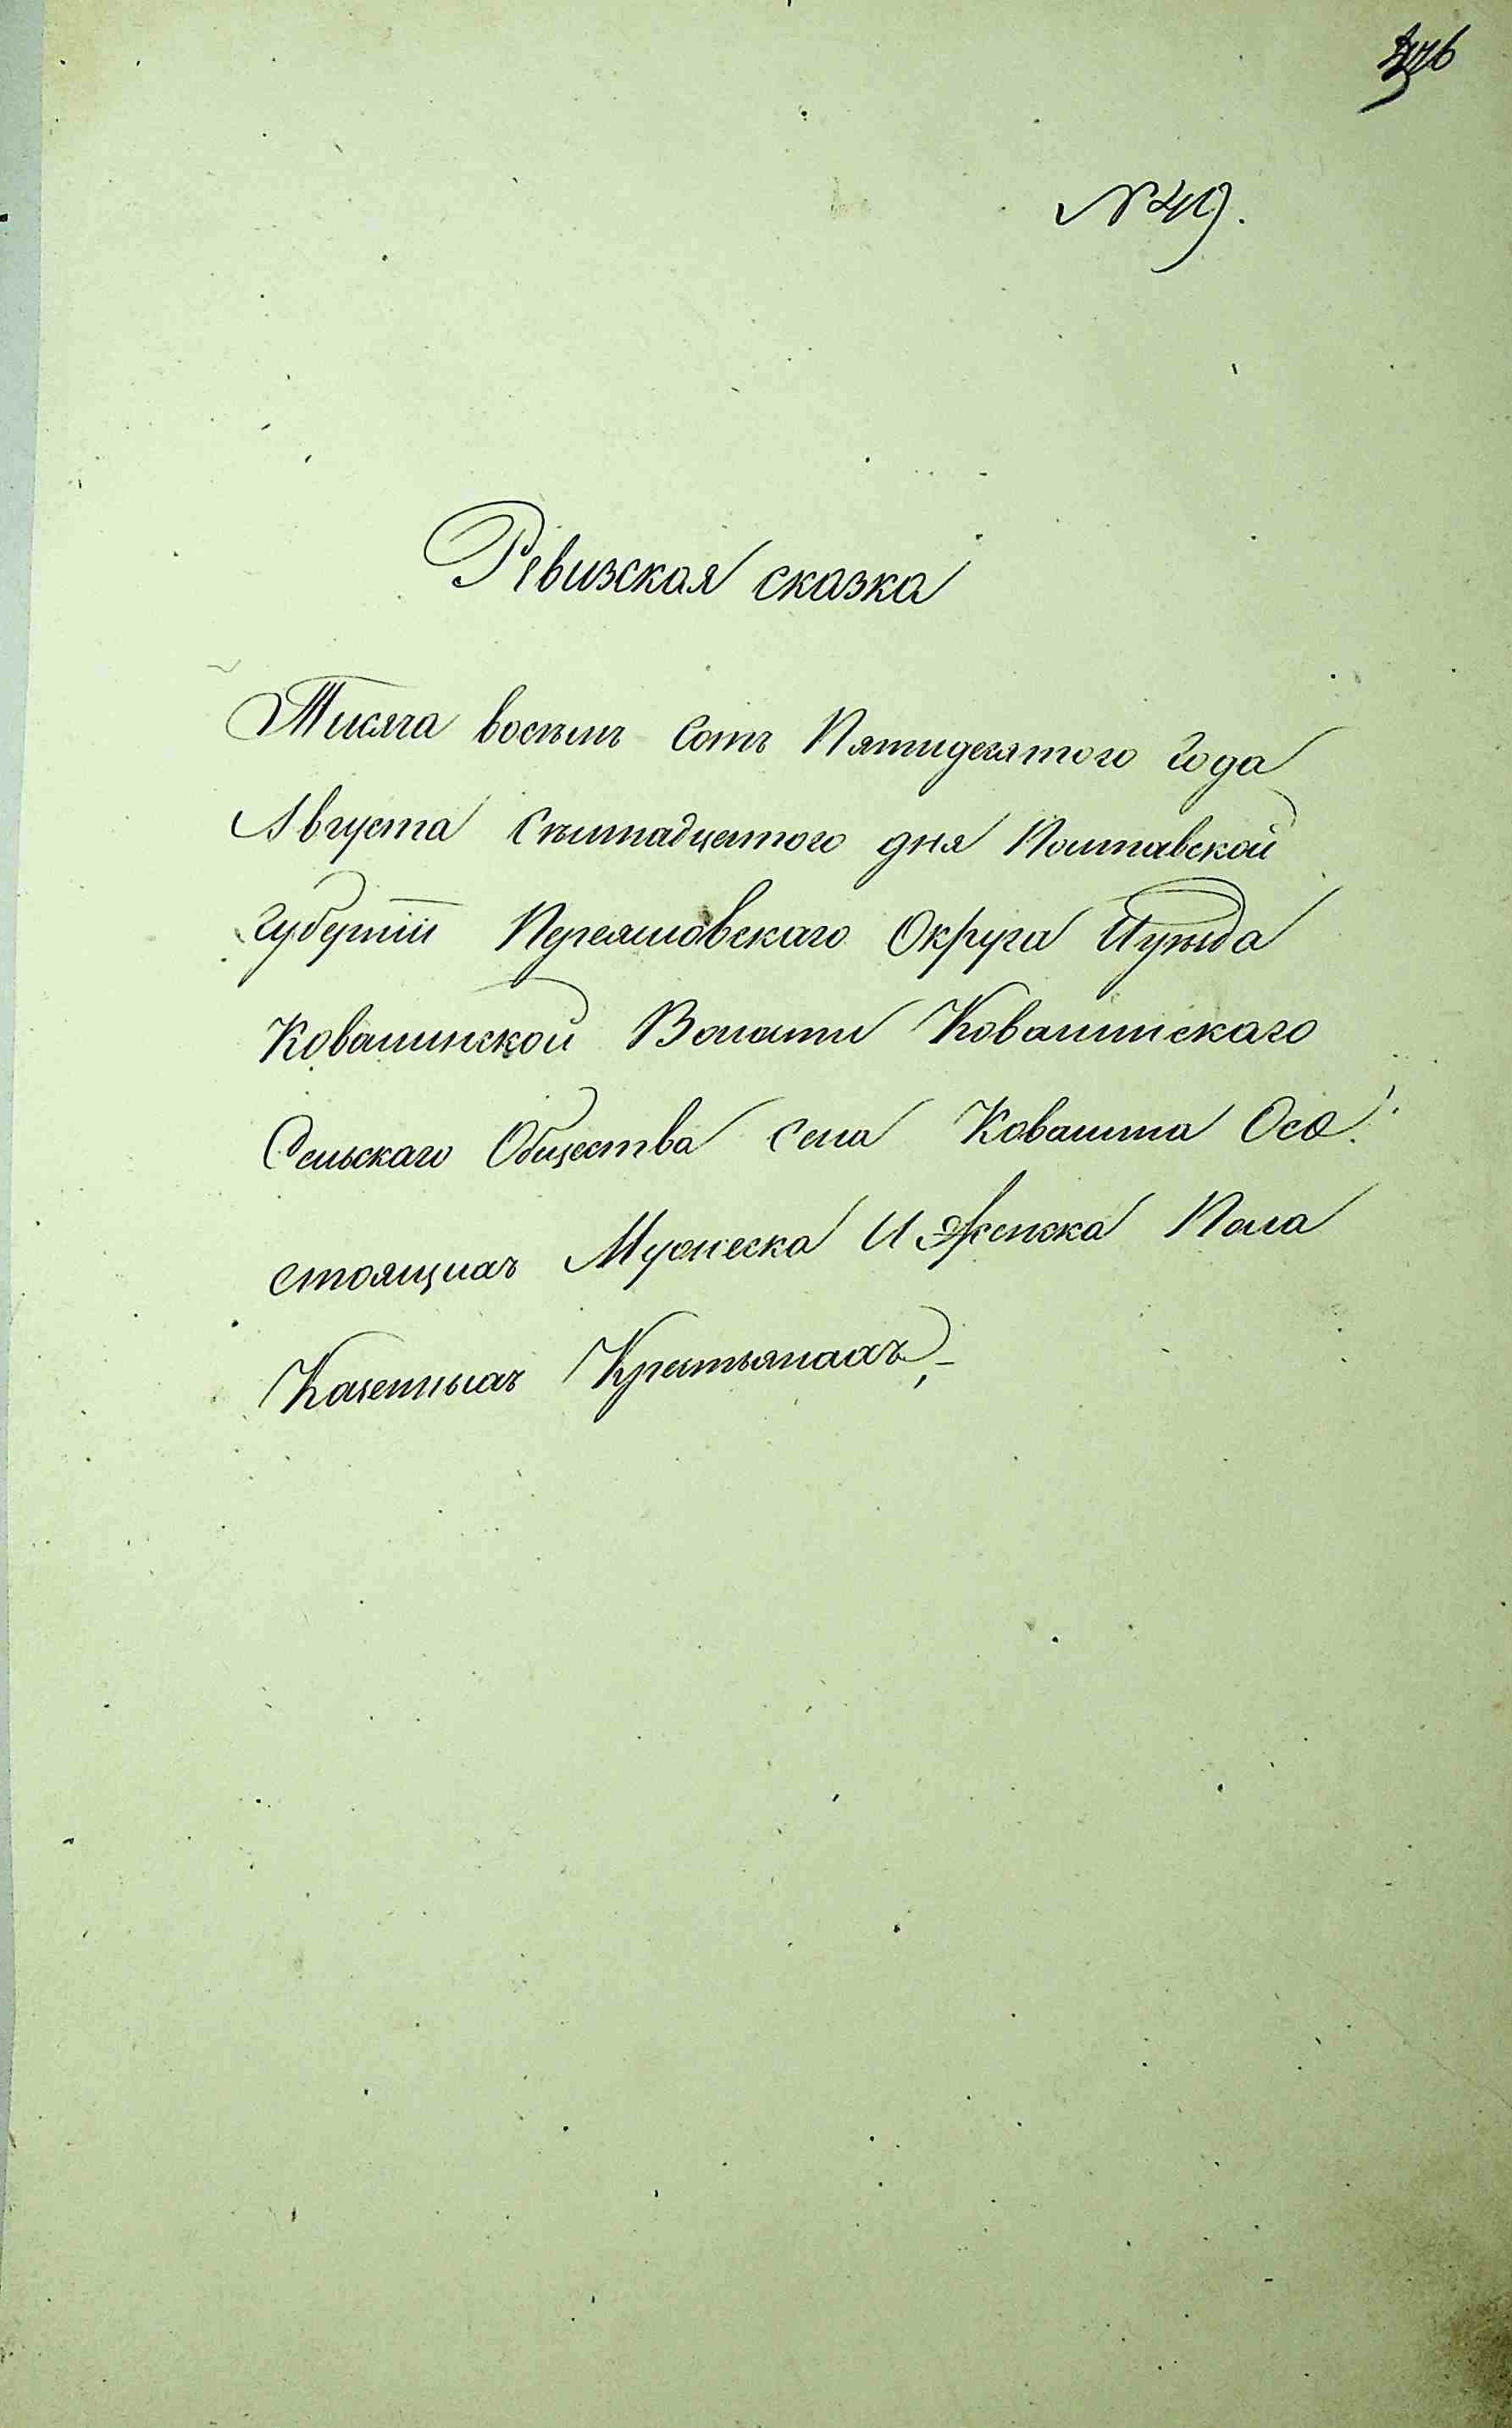 № 49.
Ревизская сказка
Тисяча восемъ Сотъ Пятидесятого Года
Августа Семнадцятого дня Полтавской
Губерніи Переясловскаго Округа Иуезда
Ковалинской Волости Ковалинскаго
Сельскаго Общества Села Ковалина Осо:
стоящихъ Мужеска И Женска Пола
Казенныхъ Крестьянахъ,-